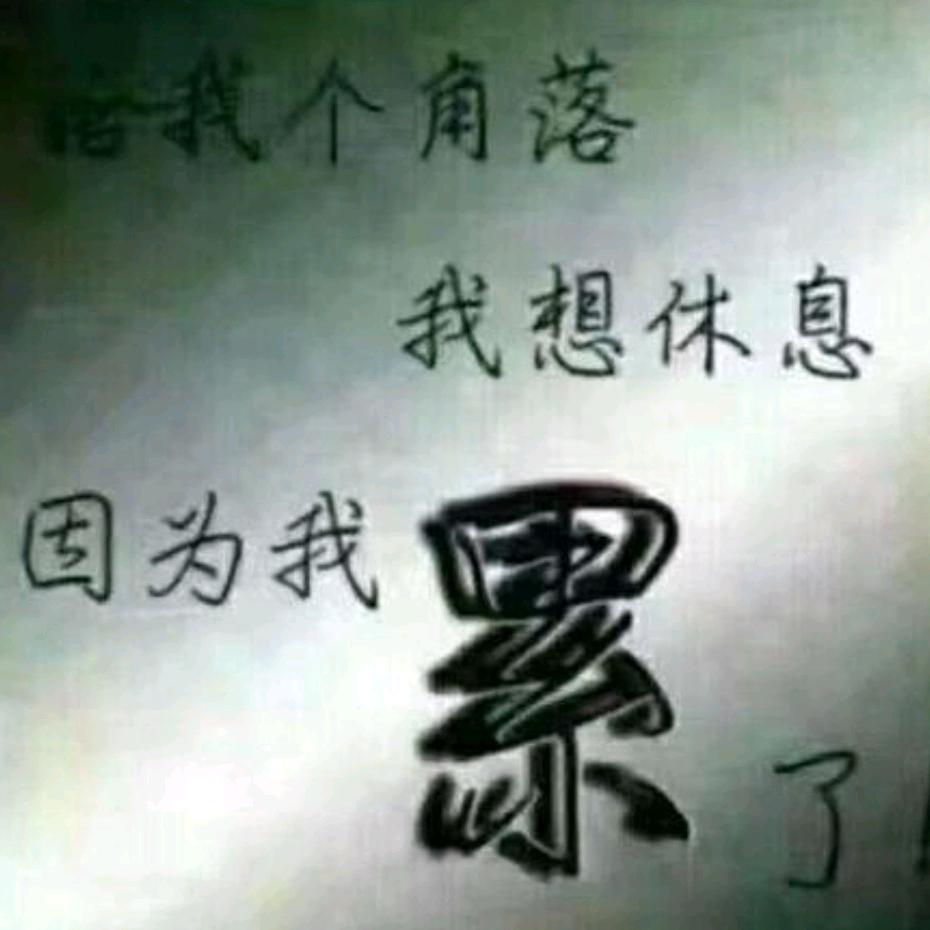 给我个角落
我想休息
因为我累了